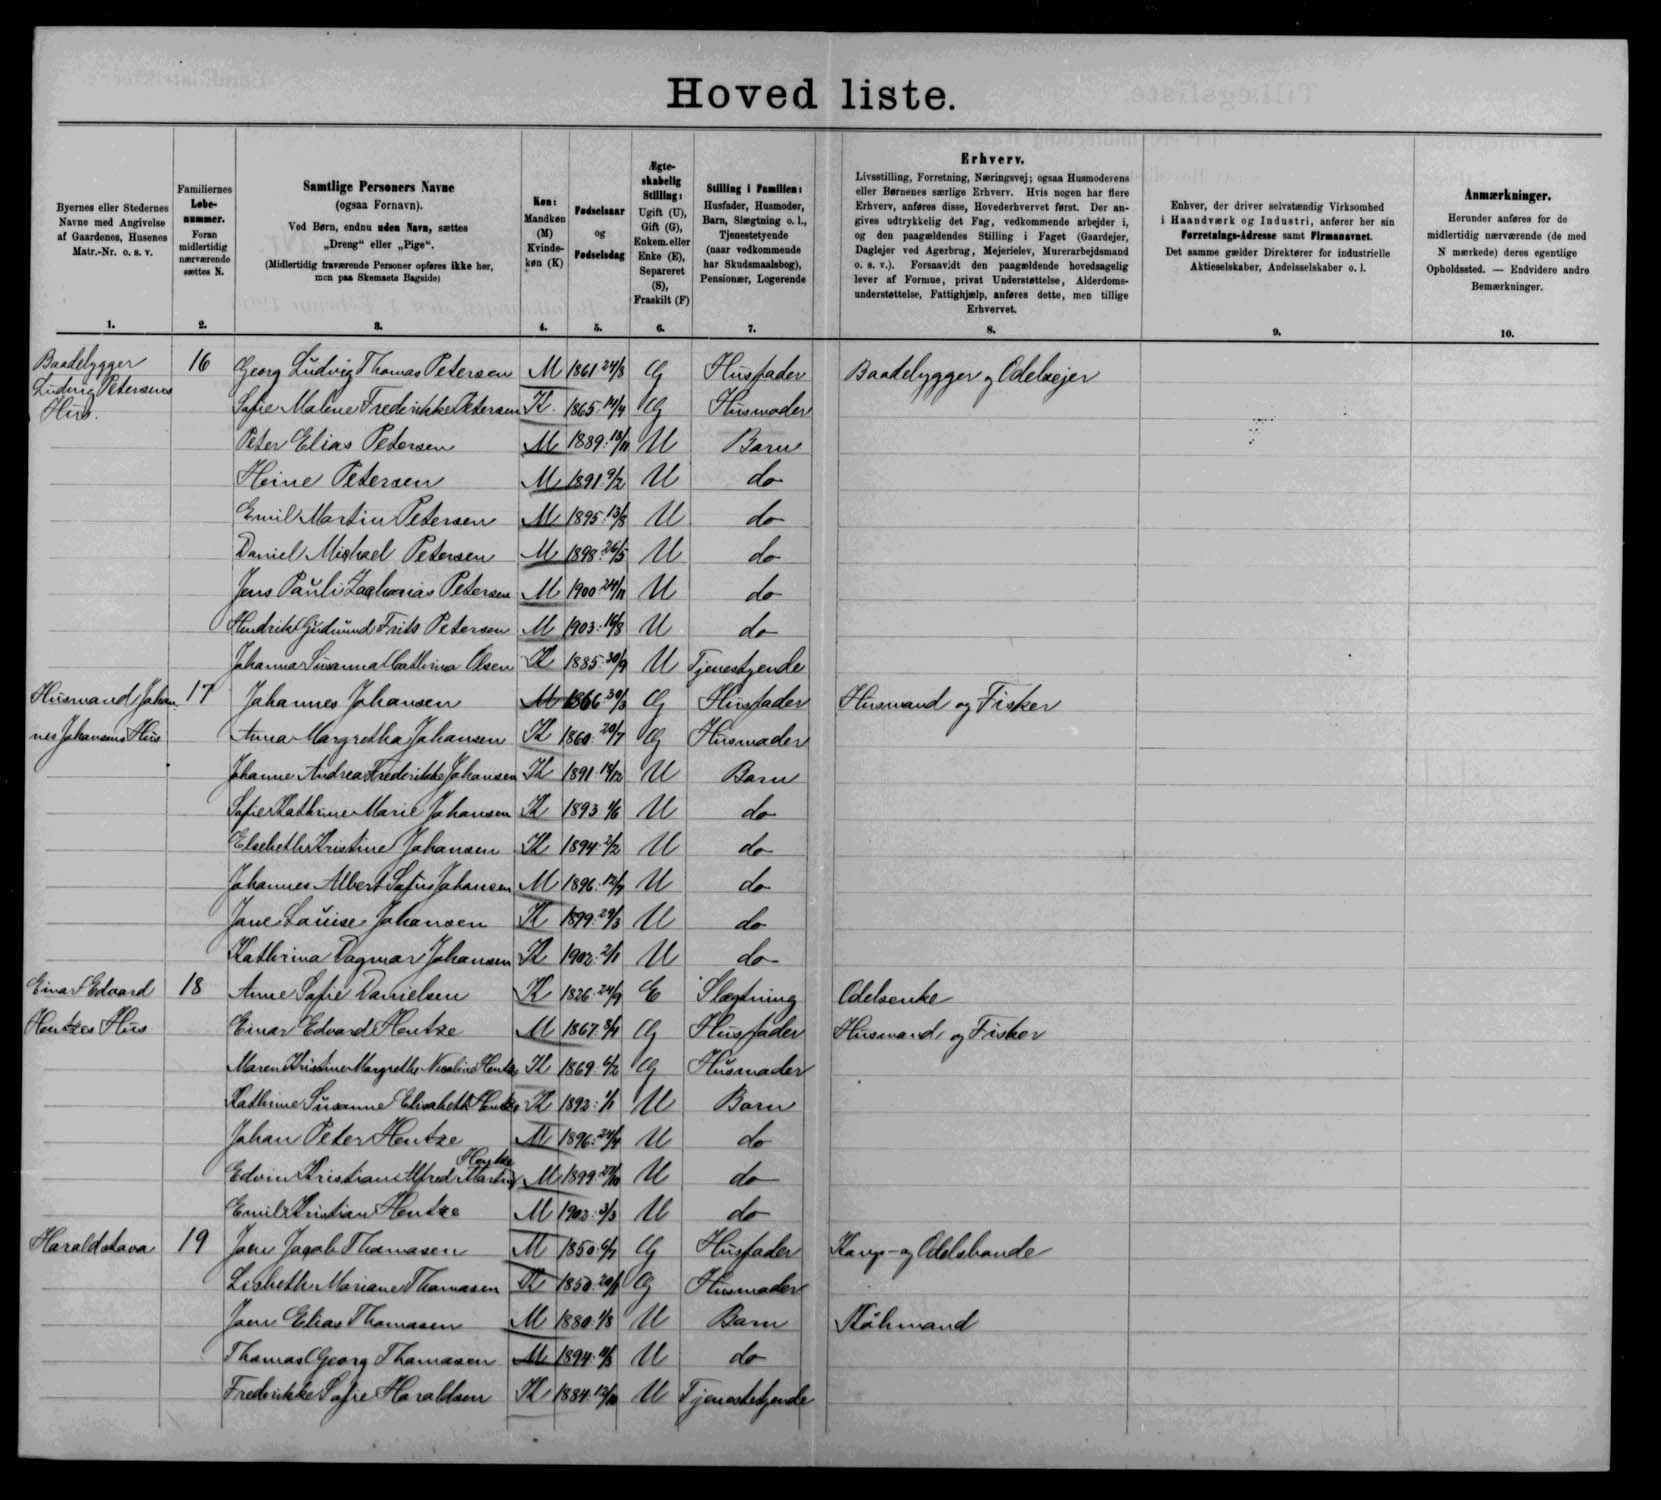 Hovedliste.
Byernes eller Stedernes Navne med Angivelse af Gaardenes, Husenes Matr.-Nr. o. s. v.
Familiernes Løbenummer. Foran midlertidig nærværende sættes N.
Samtlige Personers Navne
(ogsaa Fornavn).
Ved Børn, endnu uden Navn, sættes „Dreng“ eller „Pige“.
(Midlertidig fraværende Personer opføres ikke her, men paa Skemaets Bagside)
Køn: Mandkøn (M) Kvindekøn (K)
Fødselsaar og Fødselsdag
Ægteskabelig Stilling: Ugift (U), Gift (G), Enkem. eller Enke (E), Separeret (S), Fraskilt (F)
Stilling i Familien: Husfader, Husmoder, Barn, Slægtning o. l., Tjenestetyende (naar vedkommende har Skudsmaalsbog), Pensionær, Logerende
Erhverv.
Livsstilling, Forretning, Næringsvej; ogsaa Husmoderens eller Børnenes særlige Erhverv. Hvis nogen har flere Erhverv, anføres disse, Hovederhvervet først. Der angives udtrykkelig det Fag, vedkommende arbejder i, og den paagældendes Stilling i Faget (Gaardejer, Daglejer ved Agerbrug, Mejerielev, Murerarbejdsmand o. s. v.). Forsaavidt den paagældende hovedsagelig lever af Formue, privat Understøttelse, Alderdomsunderstøttelse, Fattighjælp, anføres dette, men tillige Erhvervet.
Enhver, der driver selvstændig Virksomhed i Haandværk og Industri, anfører her sin Forretnings-Adresse samt Firmanavnet. Det samme gælder Direktører for industrielle Aktieselskaber, Andelsselskaber o. l.
Anmærkninger.
Herunder anføres for de midlertidig nærværende (de med N mærkede) deres egentlige Opholdssted. — Endvidere andre Bemærkninger.
1. 2. 3. 4. 5. 6. 7. 8. 9. 10.
Baadebygger 16 Georg Ludvig Thomas Petersen M 1861 24/8 G Husfader Baadebygger og Odelsejer
Ludvig Petersens Sofie Malene Frederikke Petersen K 1865 14/4 G Husmoder
Hus.
Peter Elias Petersen M 1889 18/11 U Barn
Heine Petersen M 1891 9/2 U do
Emil Martin Petersen M 1895 13/8 U do
Daniel Michael Petersen M 1898 26/5 U do
Jens Pauli Zacharias Petersen M 1900 24/11 U do
Hendrik Gudmund Frits Petersen M 1903 16/8 U do
Johanna Susanna Cathrina Olsen K 1885 30/9 U Tjenestyende
Husmand Johan 17 Johannes Johansen M 1866 30/3 G Husfader Husmand og Fisker
nes Johansens Hus Anna Margretha Johansen K 1860 20/7 G Husmoder
Johanne Andrea Frederikke Johansen K 1891 14/12 U Barn
Sofie Kathrine Marie Johansen K 1893 1/6 U do
Elsebeth Kristine Johansen K 1894 2/12 U do
Johannes Albert Sofus Johansen M 1896 12/9 U do
Jane Louise Johansen K 1899 29/3 U do
Kathrina Dagmar Johansen K 1902 2/1 U do
Einar Edvard 18 Anne Sofie Danielsen K 1826 24/9 E Slægtning Odelsenke
Hentzes Hus Einar Edvard Hentze M 1867 G Husfader Husmand og Fisker
Maren Kristine Margrethe Nicoline Hentze K 1869 6/2 G Husmoder
Kathrine Susanne Elisabeth Hentze K 1892 1/1 U Barn
Johan Peter Hentze M 1896 24/4 U do
Edvin Kristian Alfred Martin Hentze M 1899 27/10 U do
Emil Kristian Hentze M 1902 3/3 U do
Haraldstava 19 Joen Jagob Thomasen M 1850 G Husfader Kongs- og Odelsbonde
Lisbeth Mariane Thomasen K 1850 G Husmoder
Joen Elias Thomasen M 1880 1/8 U Barn
Thomas Georg Thomasen M 1894 U do
Frederikke Sofie Haraldsen K 1884 12/10 U Tjenestetyende